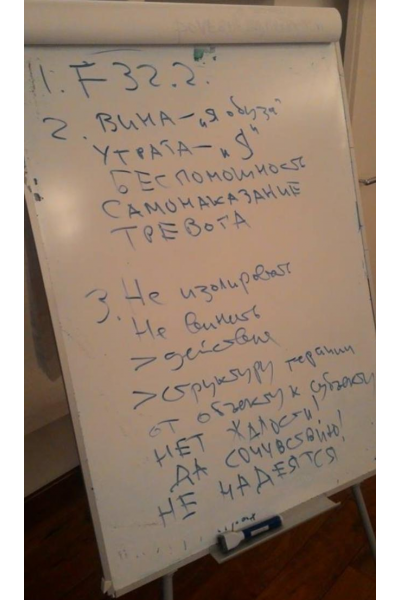 1. F32.2.
2. ВИНА – „Я обуза"
УТРАТА – „Я"
БЕСПОМОШНОСТЬ
САМОНАКАЗАНИЕ
ТРЕВОГА
3. Не изолировать
Не винить
> действия
> структуру терапии
от объекта к субъекту
НЕТ ЖАЛОСТИ!
ДА СОЧУВСТВИЮ!
НЕ НАДЕЯТСЯ